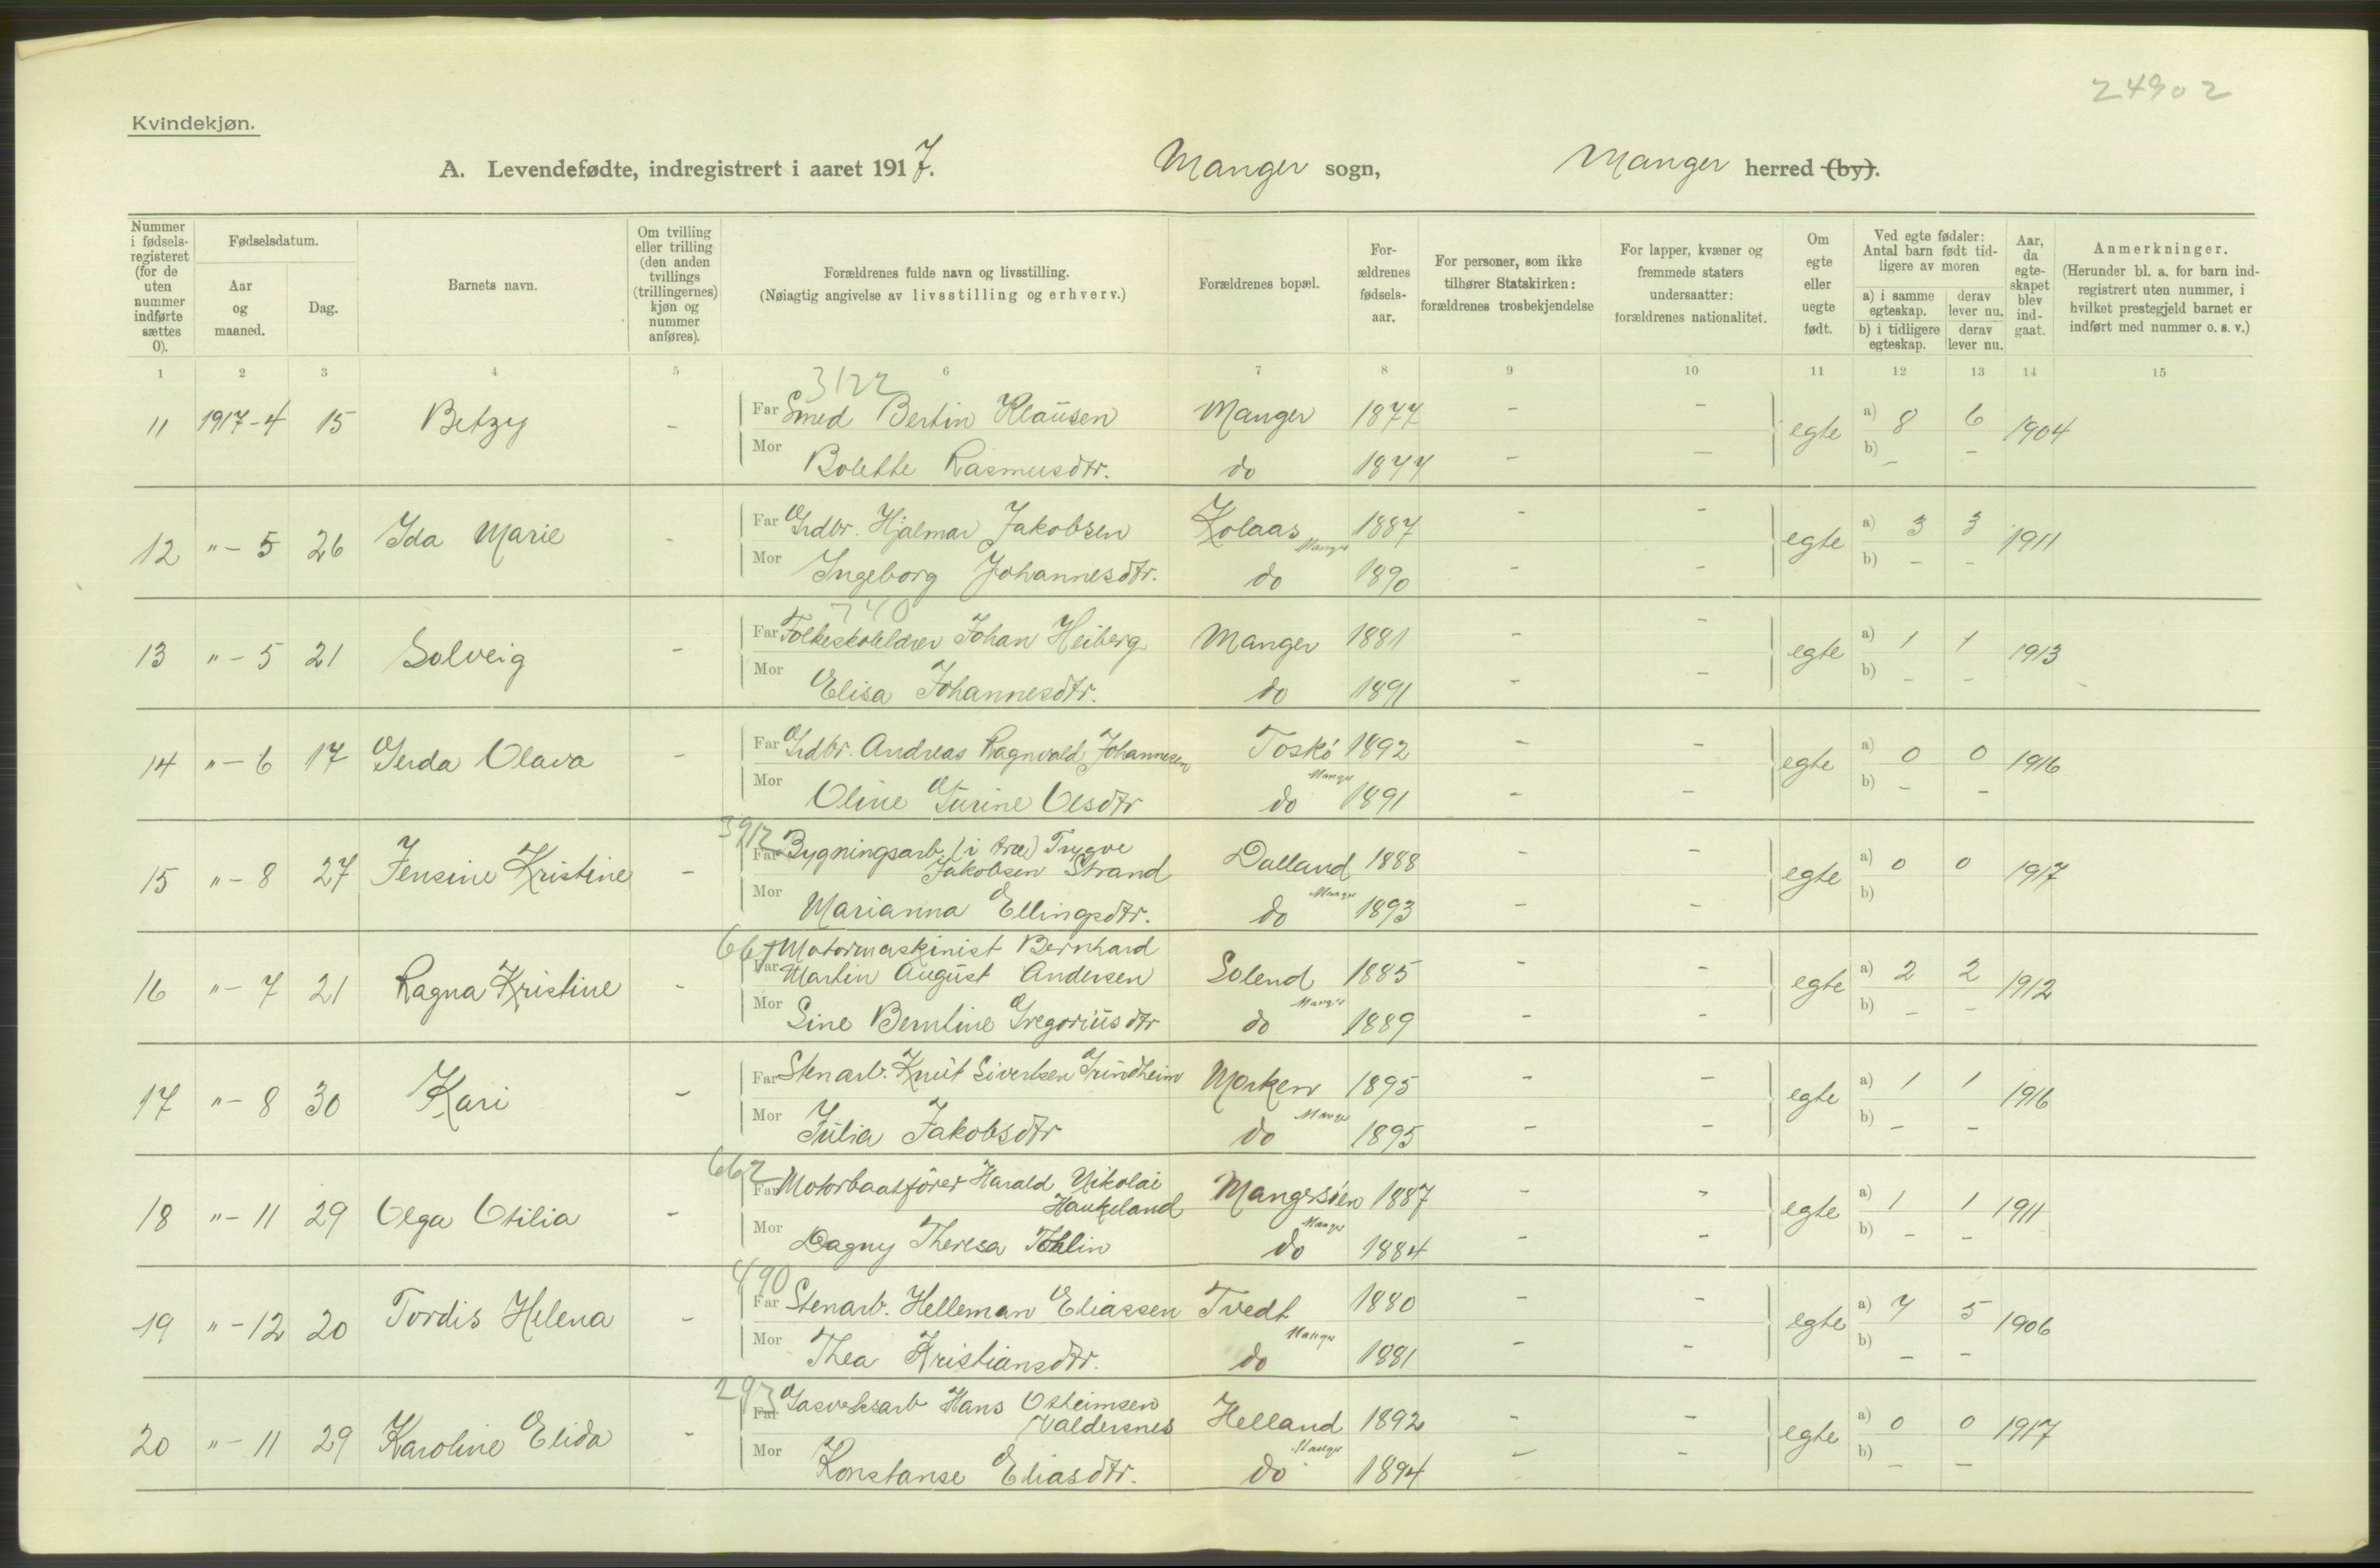 24902
Kvindekjøn.
A. Levendefødte, indregistrert i aaret 1917. Manger sogn, Manger herred (by).
Nummer i fødselsregisteret (for de uten nummer indførte sættes 0).
Fødselsdatum.
Aar og maaned.
Dag.
Barnets navn.
Om tvilling eller trilling (den anden tvillings (trillingernes) kjøn og nummer anføres).
Forældrenes fulde navn og livsstilling.
(Nøiagtig angivelse av livsstilling og erhverv.)
Forældrenes bopæl.
Forældrenes fødselsaar.
For personer, som ikke tilhører Statskirken: forældrenes trosbekjendelse
For lapper, kvæner og fremmede staters undersaatter: forældrenes nationalitet.
Om egte eller uegte født.
Ved egte fødsler: Antal barn født tidligere av moren
a) i samme egteskap. derav lever nu.
b) i tidligere egteskap. derav lever nu.
Aar, da egteskapet blev indgaat.
Anmerkninger.
(Herunder bl. a. for barn indregistrert uten nummer, i hvilket prestegjeld barnet er indført med nummer o. s. v.)
1 2 3 4 5 6 7 8 9 10 11 12 13 14 15
3122
11 1917-4 15 Betzy - Far Smed Bertin Klausen Manger 1877 - - egte a) 8 6 1904
Mor Bolette Rasmusdtr. do 1877 - - b) - -
12 "-5 26 Ida Marie - Far Grdbr. Hjalmar Jakobsen Kolaas 1887 - - egte a) 3 3 1911
Manger
Mor Ingeborg Johannesdtr. do 1890 - - b) - -
740
13 "-5 21 Solveig - Far Folkeskolelærer Johan Heiberg Manger 1881 - - egte a) 1 1 1913
Mor Elisa Johannesdtr. do 1891 - - b) - -
14 "-6 17 Gerda Olava - Far Grdbr. Andreas Ragnvald Johannesen Toskö 1892 - - egte a) 0 0 1916
Manger
Mor Oline Gurine Olsdtr do 1891 - - b) - -
3912
15 "-8 27 Jensine Kristine - Far Bygningsarb. (i træ) Trygve
Jakobsen Strand Dalland 1888 - - egte a) 0 0 1917
Manger
Mor Marianna Ellingsdtr. do 1893 - - b)
661
16 "-7 21 Ragna Kristine - Far Motormaskinist Bernhard
Martin August Andersen Solend 1885 - - egte a) 2 2 1912
Manger
Mor Sine Berntine Gregoriusdtr do 1889 - - b) - -
17 "-8 30 Kari - Far Stenarb. Knut Sivertsen Grindheim Morken 1895 - - egte a) 1 1 1916
Manger
Mor Julia Jakobsdtr do 1895 - - b) - -
662
18 "-11 29 Olga Otilia - Far Motorbaatförer Harald Nikolai
Haukeland Mangersöen 1887 - - egte a) 1 1 1911
Manger
Mor Dagny Theresa do 1884 - - b) - -
490
19 "-12 20 Tordis Helena - Far Stenarb. Helleman Eliassen Tvedt 1880 - - egte a) 7 5 1906
Manger
Mor Thea Kristiansdtr. do 1881 - - b) - -
293
20 "-11 29 Karoline Elida - Far Gasverksarb Hans Ostheimsen
Valdersnes Helland 1892 - - egte a) 0 0 1917
Manger
Mor Konstanse Eliasdtr. do 1894 - - b) - -